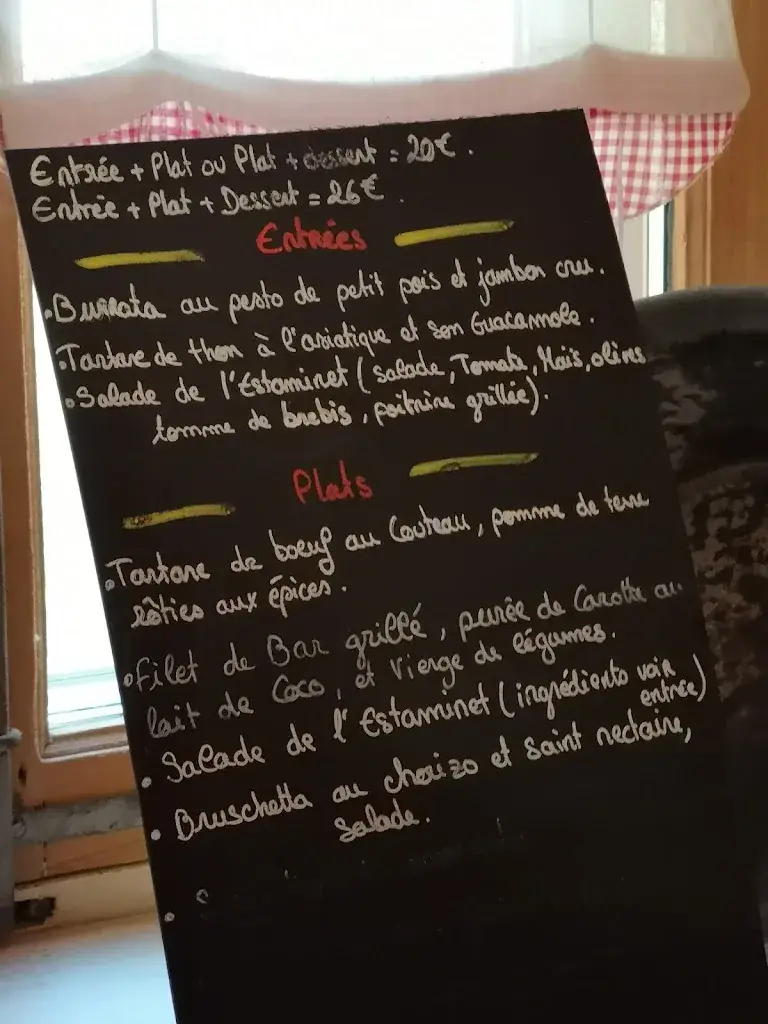 Entrée + Plat ou Plat + dessert = 20€.
Entrée + Plat + Dessert = 26€.
Entrées
• Burrata au pesto de petit pois et jambon cru.
• Tartare de thon à l'asiatique et son Guacamole.
• Salade de l'Estaminet (salade, Tomate, Maïs, olives
tomme de brebis, poitrine grillée).
Plats
• Tartare de boeuf au Couteau, pomme de terre
rôties aux épices.
• Filet de Bar grillé, purée de Carotte au
lait de Coco, et Vierge de légumes.
• Salade de l'Estaminet (ingrédients voir
entrée)
• Bruschetta au chorizo et saint nectaire,
salade.